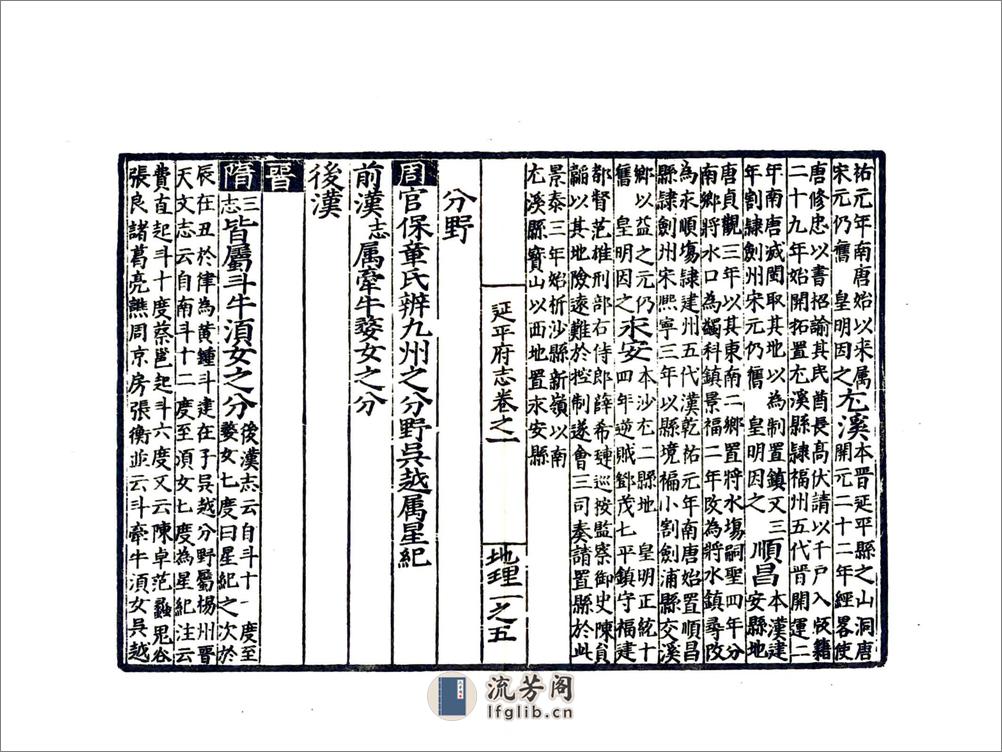 祐元年南唐始以来属
宋元仍舊　皇明因之尤溪本晉延平縣之山洞唐
開元二十二年經畧使
唐修忠以書招諭其民酋長高伏請以千戶入版籍
二十九年始開拓置尤溪縣隸福州五代晉開運二
年南唐滅閩取其地以為制置鎮又三
年割隸劍州宋元仍舊　皇明因之順昌本漢建
安縣地
唐貞觀三年以其東南二鄉置將水場嗣聖四年分
南鄉將水口為蠲科鎮景福二年改為將水鎮尋改
為永順場隸建州五代漢乾祐元年南唐始置順昌
縣隸劍州宋熙寧三年以縣境褊小割劍浦縣交溪
鄉以益之元仍
舊　皇明因之永安本沙尤二縣地　皇明正統十
四年逆賊鄧茂七平鎮守福建
都督范雄刑部右侍郎薛希璉巡按監察御史陳員
韜以其地險遠難於控制遂會三司奏請置縣於此
景泰三年始析沙縣新嶺以南
尤溪縣寶山以西地置永安縣
延平府志卷之一
地理一之五
分野
周官保章氏辨九州之分野吳越属星紀
前漢志属牽牛婺女之分
後漢
晉
隋三志皆屬斗牛湏女之分後漢志云自斗十一度至
婺女七度曰星紀之次於
辰在丑於律為黃鍾斗建在子吳越分野屬楊州晉
天文志云自南斗十二度至湏女七度為星紀注云
費直起斗十度蔡邕起斗六度又云陳卓范蠡鬼谷
張良諸葛亮譙周京房張衡並云斗牽牛湏女吳越
流芳阁
lfglib.cn